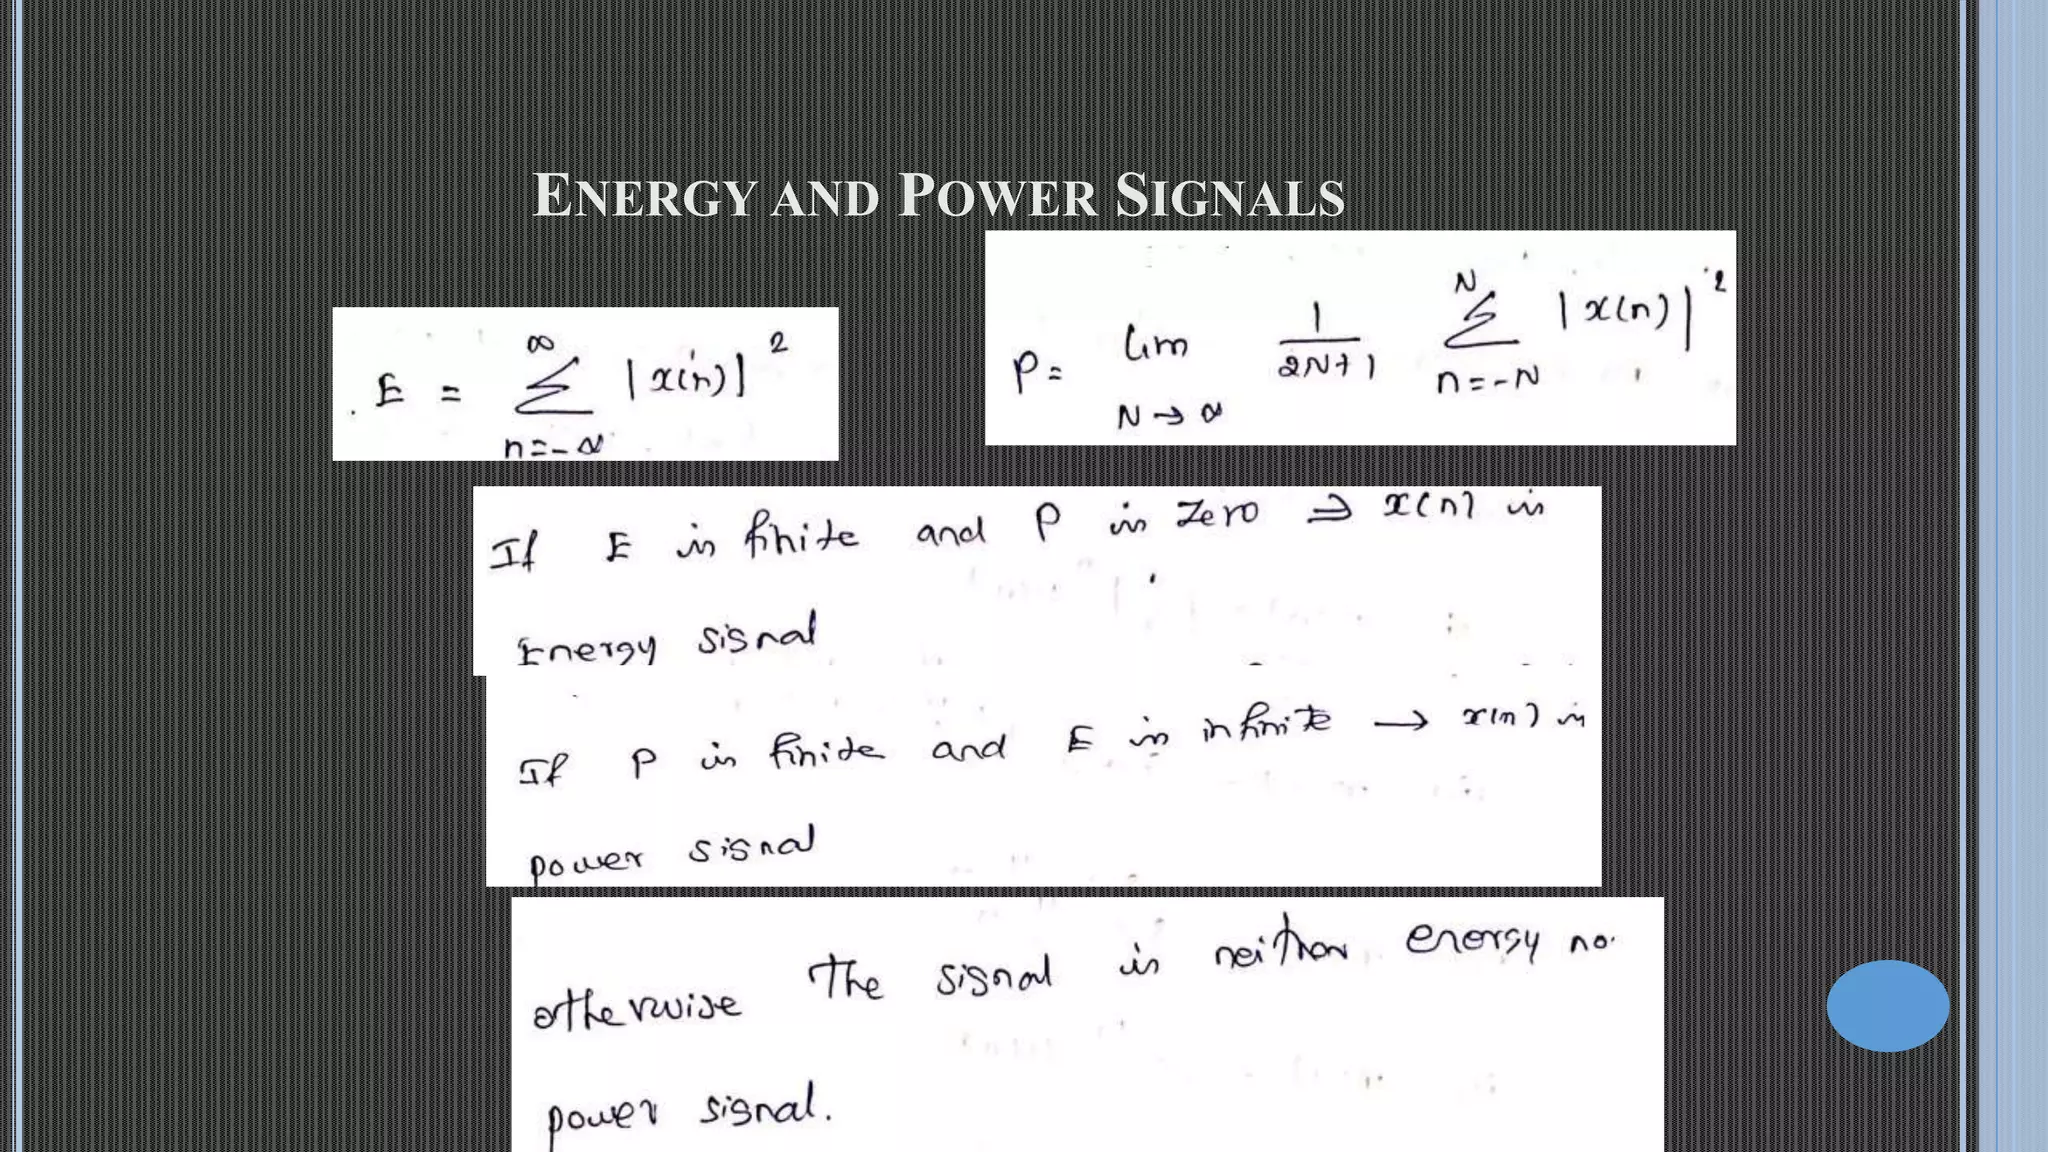 ENERGY AND POWER SIGNALS
E = ∞ Σ n=-∞ |x(n)|²
P = lim N→∞ 1/2N+1 N Σ n=-N |x(n)|²
If E is finite and P is zero ⇒ x(n) is
Energy signal
If P is finite and E is infinite → x(n) is
power signal
otherwise The signal is neither energy no
power signal.